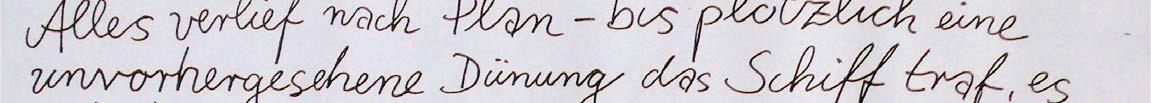 Alles verlief nach Plan – bis plötzlich eine
unvorhergesehene Dünung das Schiff traf, es